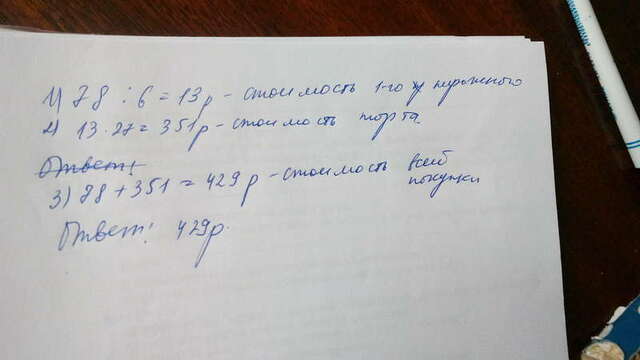 1) 78 : 6 = 13 р - стоимость 1-го пирожного
2) 13 · 27 = 351 р - стоимость торта
Ответ:
3) 78 + 351 = 429 р - стоимость всей покупки
Ответ: 429 р.